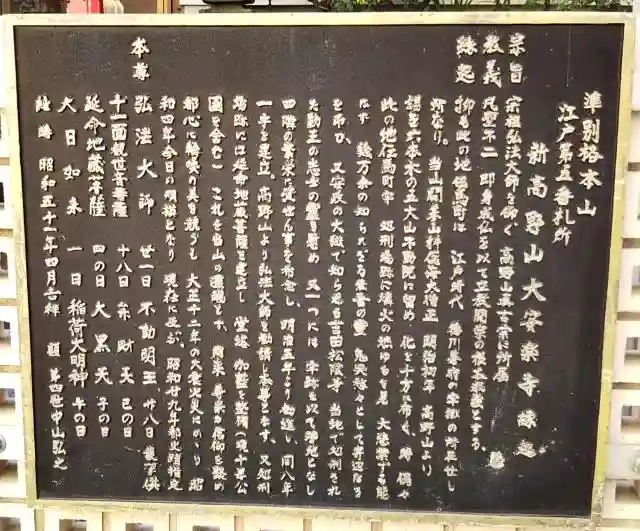 準別格本山
江戸第五番札所
新高野山大安楽寺縁起
宗旨 宗祖弘法大師を仰ぐ 高野山真言宗に所属
教義 凡聖不二 即身成仏を以て立教開宗の根本教義とする。
縁起 抑も此の地 伝馬町は 江戸時代 徳川幕府の牢獄の所在せし
所なり。 当山開基山科俊海大僧正 明治初年 高野山より
錫を六本木の五大山不動院に留め 化を十方に布く、時 偶々
此の地伝馬町牢 処刑場跡に燐火の燃ゆるを見 大悲禁ずる能
わず 幾万余の知られざる 鬼哭啾々として
を弔ひ、 又安政の大獄で知らるる吉田松陰等 当地で処刑され
た勤王の志士の霊を慰め 又一つには 牢跡を以て浄化となし
四隣の繁栄を資せん事を祈念し、明治五年より勧進し、同八年
一宇を建立。高野山より弘法大師を勧請し本尊となす。又処刑
場跡には延命地蔵菩薩を建立し 堂塔 伽藍を整備(現十思公
園を含む) これを当山の濫觴とす、爾来 尊家の信仰を蒐め
都心に輪奐の美を競うも 大正十二年の大震火災にかかり 昭
和四年今日の規模となり 現在に及ぶ、昭和廿九年都史蹟指定
本尊 弘法大師 廿一日 不動明王 廿八日 護摩供
十一面観世音菩薩 十八日 弁財天 己の日
延命地蔵菩薩 四の日 大黒天 子の日
大日如来 一日 稲荷大明神 午の日
維時 昭和五十一年四月吉祥 願 第四世中山弘之